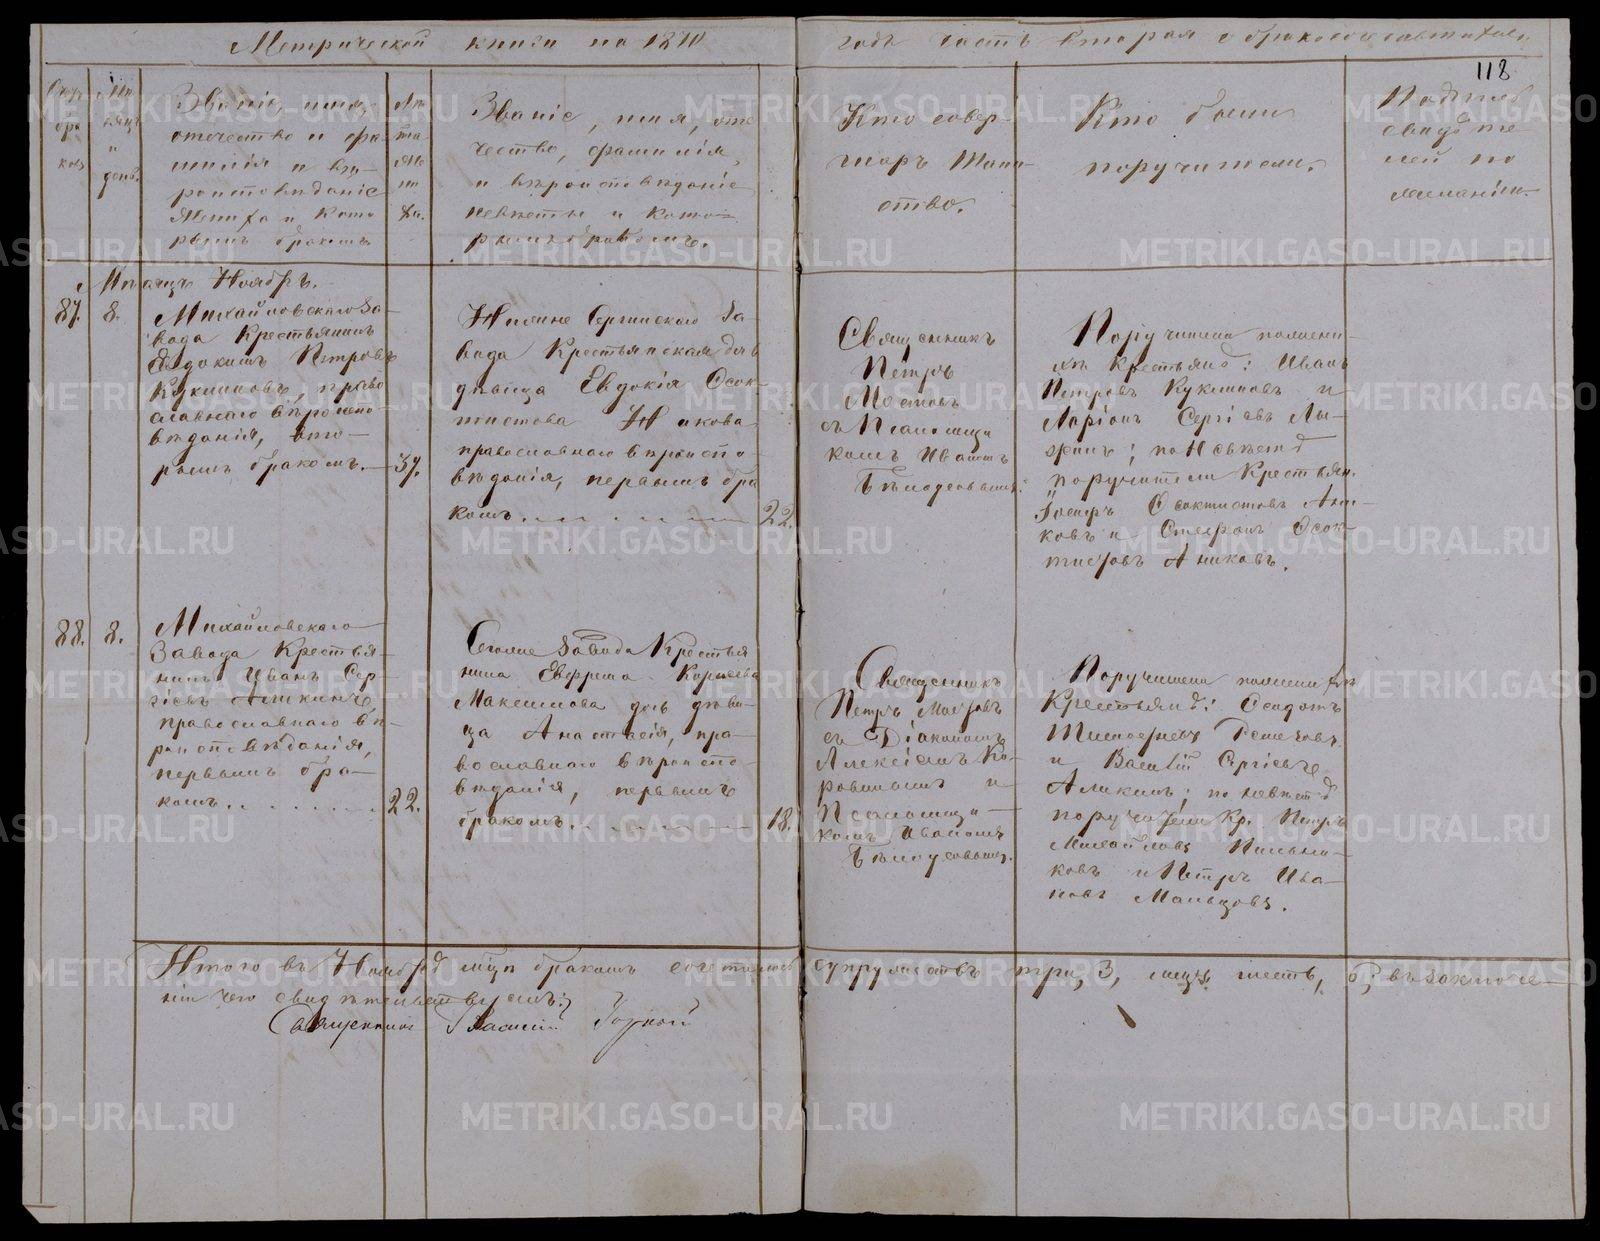 Метрической книги на 1870
годъ часть вторая о бракосочетавшихся
118
Звание, имя,
отчество и фа-
милія и вѣ-
роисповѣданіе
жениха и кото
рымъ бракомъ
Лѣ
та
же
ни
ха.
Званіе, имя, оте
чество, фамилія,
и вѣроисповѣданіе
невѣсты и кото-
рымъ бракомъ.
Кто совер-
шаръ Таин-
ство.
Кто были
поручители.
Подпись
свидѣте
лей по
желанію.
Мѣсяцъ Ноябрь.
87. 8.
Михайловскаго за-
вода Крестьянинъ
Евдокимъ Петровъ
Куклиновъ, право
славнаго вѣроиспо-
вѣданія, вто-
рымъ бракомъ. 37.
Нижне Сергинскаго за-
вода Крестьянская дочь
дѣвица Евдокія Ѳеок-
тистова Аникова
православнаго вѣроиспо-
вѣданія, первымъ бра
комъ 22.
Священникъ
Петръ
Мостовъ
съ Псаломщи
комъ Иваномъ
Бѣлоусовымъ.
Поручители по жени-
хѣ Крестьяне: Иванъ
Петровъ Куклиновъ и
Ларіонъ Сергіевъ Лы-
жинъ; по Невѣстѣ
поручители Крестьян.
Іосифъ Ѳеоктистовъ Ани-
ковъ и Стефанъ Ѳеок-
тистовъ Аниковъ.
88. 8.
Михайловскаго
Завода Крестья-
нинъ Иванъ Сер-
гіевъ
православнаго вѣ-
роисповѣданія,
первымъ бра-
комъ 22.
Тогоже Завода Крестья
нина Евфрема
Максимова дочь дѣви-
ца Анастасія, пра-
вославнаго вѣроиспо-
вѣданія, первымъ
бракомъ 18.
Священникъ
Петръ Мостовъ
съ Діакономъ
Алексіемъ Ко-
ровинымъ и
Псаломщи-
комъ Иваномъ
Бѣлоусовымъ.
Поручители по женихѣ
Крестьяне: Ѳедотъ
Тимоѳеевъ
и Василій Сергіевъ
по невѣстѣ
поручители Кр. Петръ
Михайловъ
ковъ и Петръ Ива-
новъ Мальцовъ.
Итого въ Ноябрѣ мѣсяцѣ бракомъ сочеталось супружествъ три, 3, лицъ шесть, 6, въ заключе-
ніи чего свидѣтельствуемъ:
Священникъ